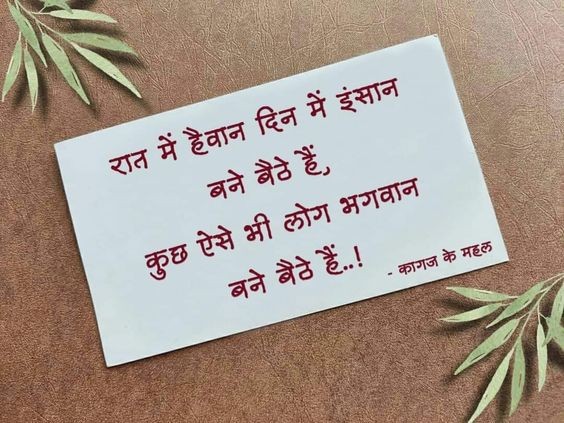 रात में हैवान दिन में इंसान
बने बैठे हैं,
कुछ ऐसे भी लोग भगवान
बने बैठे हैं..!
- कागज के महल